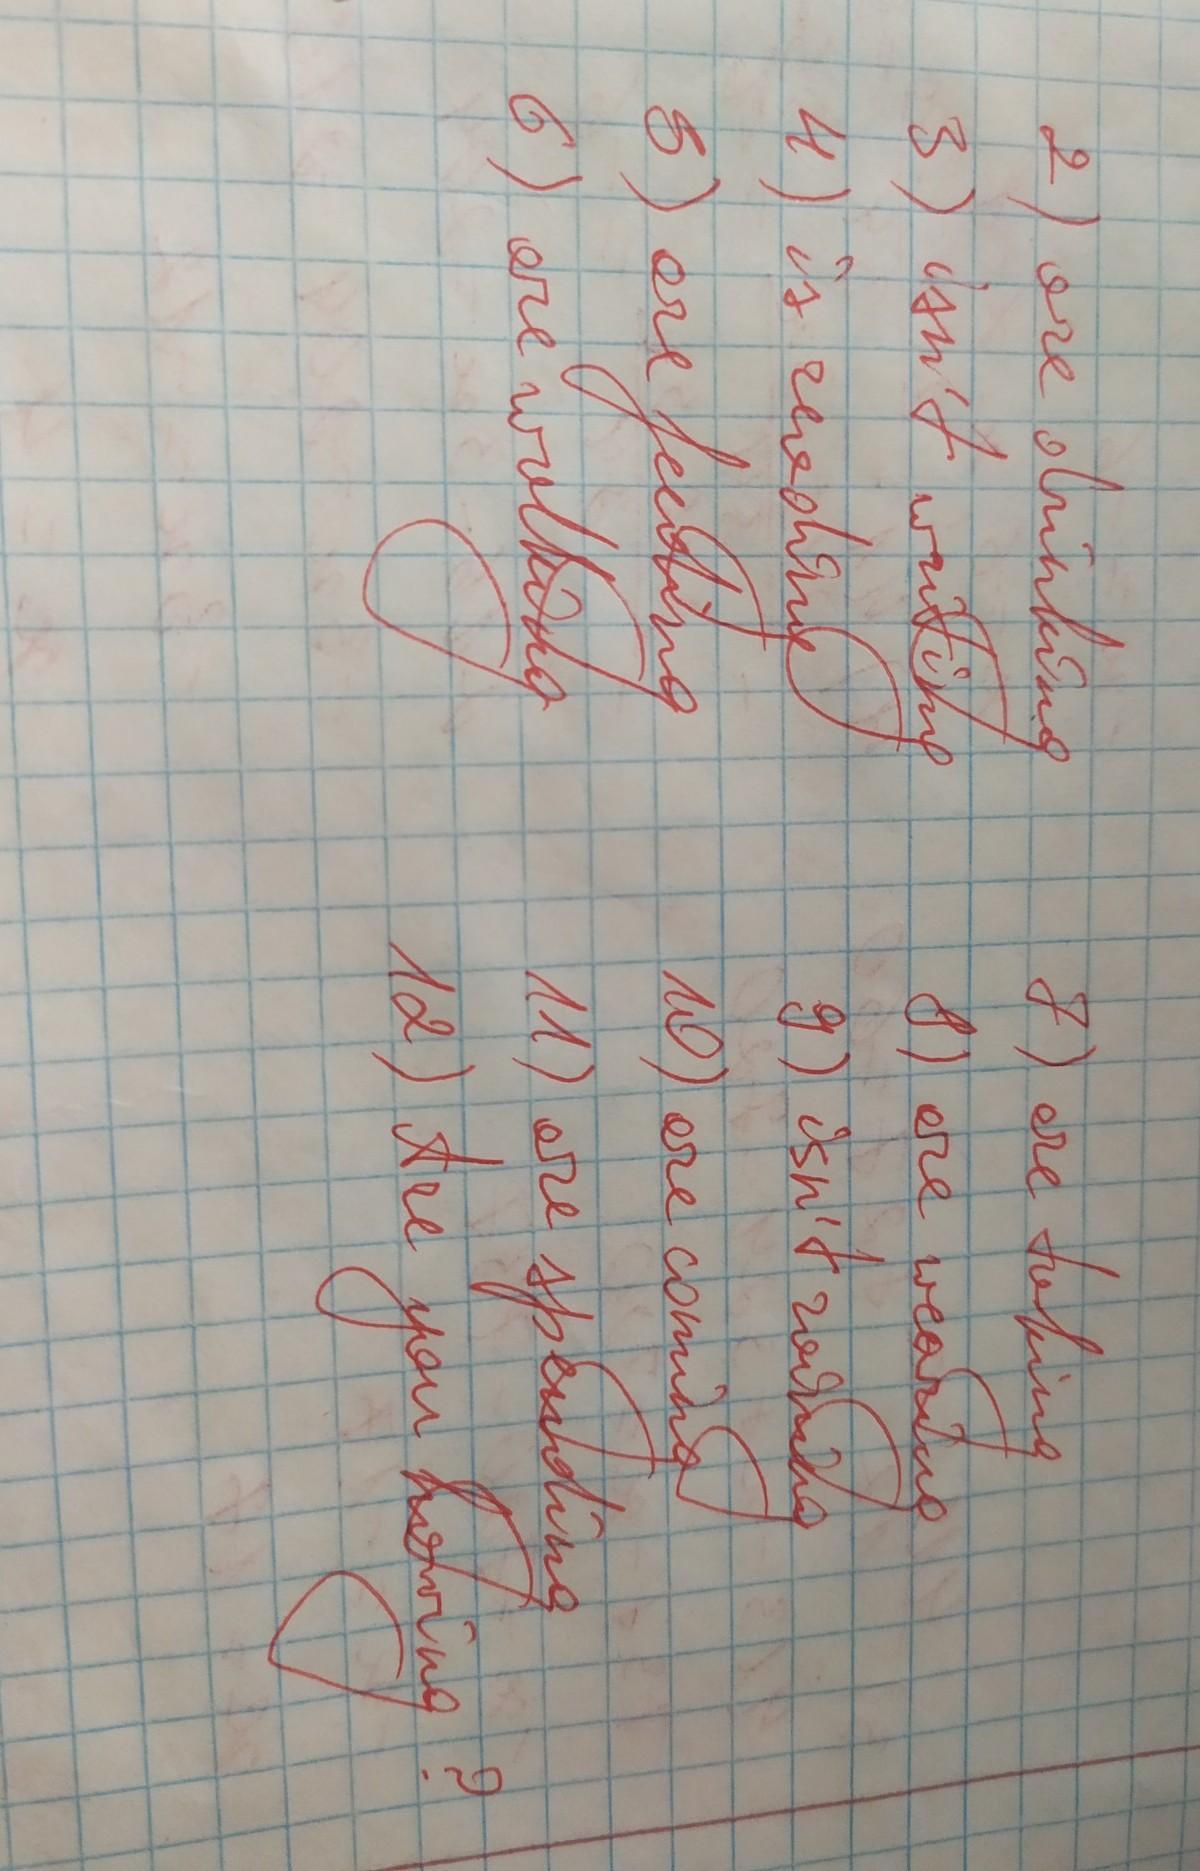 2) are drinking
3) isn't writing
4) is reading
5) are feeding
6) are walking
7) are taking
8) are wearing
9) isn't raining
10) are coming
11) are spending
12) Are you having ?